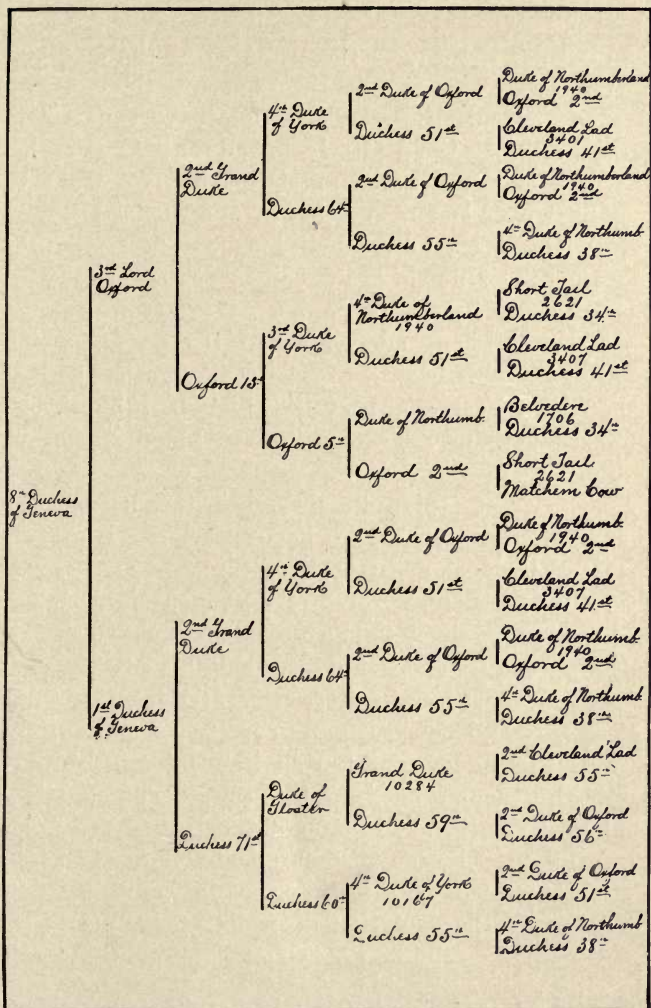 8th Duchess
of Geneva
3rd Lord
Oxford
1st Duchess
of Geneva
2nd Grand
Duke
Oxford 13th
2nd Grand
Duke
Duchess 71st
4th Duke
of York
Duchess 64th
3rd Duke
of York
Oxford 5th
4th Duke
of York
Duchess 64th
Duke of
Gloster
Duchess 60th
2nd Duke of Oxford
Duchess 51st
2nd Duke of Oxford
Duchess 55th
4th Duke of
Northumberland
1940
Duchess 51st
Duke of Northumb.
Oxford 2nd
2nd Duke of Oxford
Duchess 51st
2nd Duke of Oxford
Duchess 55th
Grand Duke
10284
Duchess 59th
4th Duke of York
10167
Duchess 55th
Duke of Northumberland
1940
Oxford 2nd
Cleveland Lad
3401
Duchess 41st
Duke of Northumberland
1940
Oxford 2nd
4th Duke of Northumb
Duchess 38th
Short Tail
2621
Duchess 34th
Cleveland Lad
3407
Duchess 41st
Belvedere
1706
Duchess 34th
Short Tail
2621
Matchem Cow
Duke of Northumb.
1940
Oxford 2nd
Cleveland Lad
3407
Duchess 41st
Duke of Northumb.
1940
Oxford 2nd
4th Duke of Northumb
Duchess 38th
2nd Cleveland Lad
Duchess 55th
2nd Duke of Oxford
Duchess 56th
2nd Duke of Oxford
Duchess 51st
4th Duke of Northumb
Duchess 38th